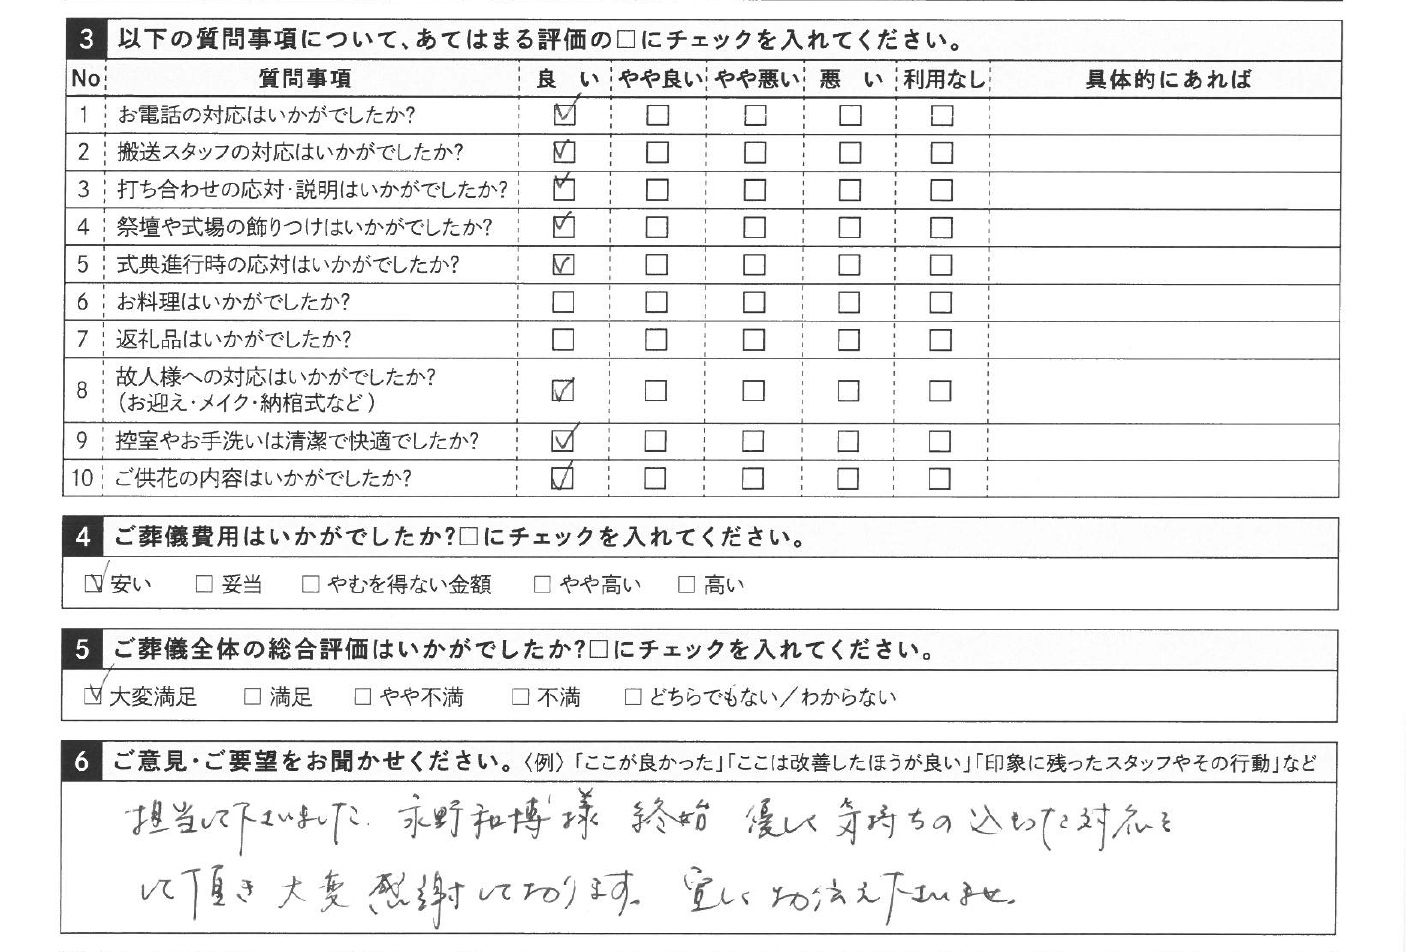 3 以下の質問事項について、あてはまる評価の□にチェックを入れてください。
No 質問事項 良 い やや良い やや悪い 悪 い 利用なし 具体的にあれば
1 お電話の対応はいかがでしたか? ☑ □ □ □ □
2 搬送スタッフの対応はいかがでしたか? ☑ □ □ □ □
3 打ち合わせの応対・説明はいかがでしたか? ☑ □ □ □ □
4 祭壇や式場の飾りつけはいかがでしたか? ☑ □ □ □ □
5 式典進行時の応対はいかがでしたか? ☑ □ □ □ □
6 お料理はいかがでしたか? □ □ □ □ □
7 返礼品はいかがでしたか? □ □ □ □ □
8 故人様への対応はいかがでしたか? ☑ □ □ □ □
(お迎え・メイク・納棺式など)
9 控室やお手洗いは清潔で快適でしたか? ☑ □ □ □ □
10 ご供花の内容はいかがでしたか? ☑ □ □ □ □
4 ご葬儀費用はいかがでしたか?□にチェックを入れてください。
☑ 安い □ 妥当 □ やむを得ない金額 □ やや高い □ 高い
5 ご葬儀全体の総合評価はいかがでしたか?□にチェックを入れてください。
☑ 大変満足 □ 満足 □ やや不満 □ 不満 □ どちらでもない/わからない
6 ご意見・ご要望をお聞かせください。〈例〉「ここが良かった」「ここは改善したほうが良い」「印象に残ったスタッフやその行動」など
担当して下さいました、永野和博様 終始 優しく 気持ちの 込もった対応を
して頂き 大変 感謝しております。宜しくお伝え下さいませ。